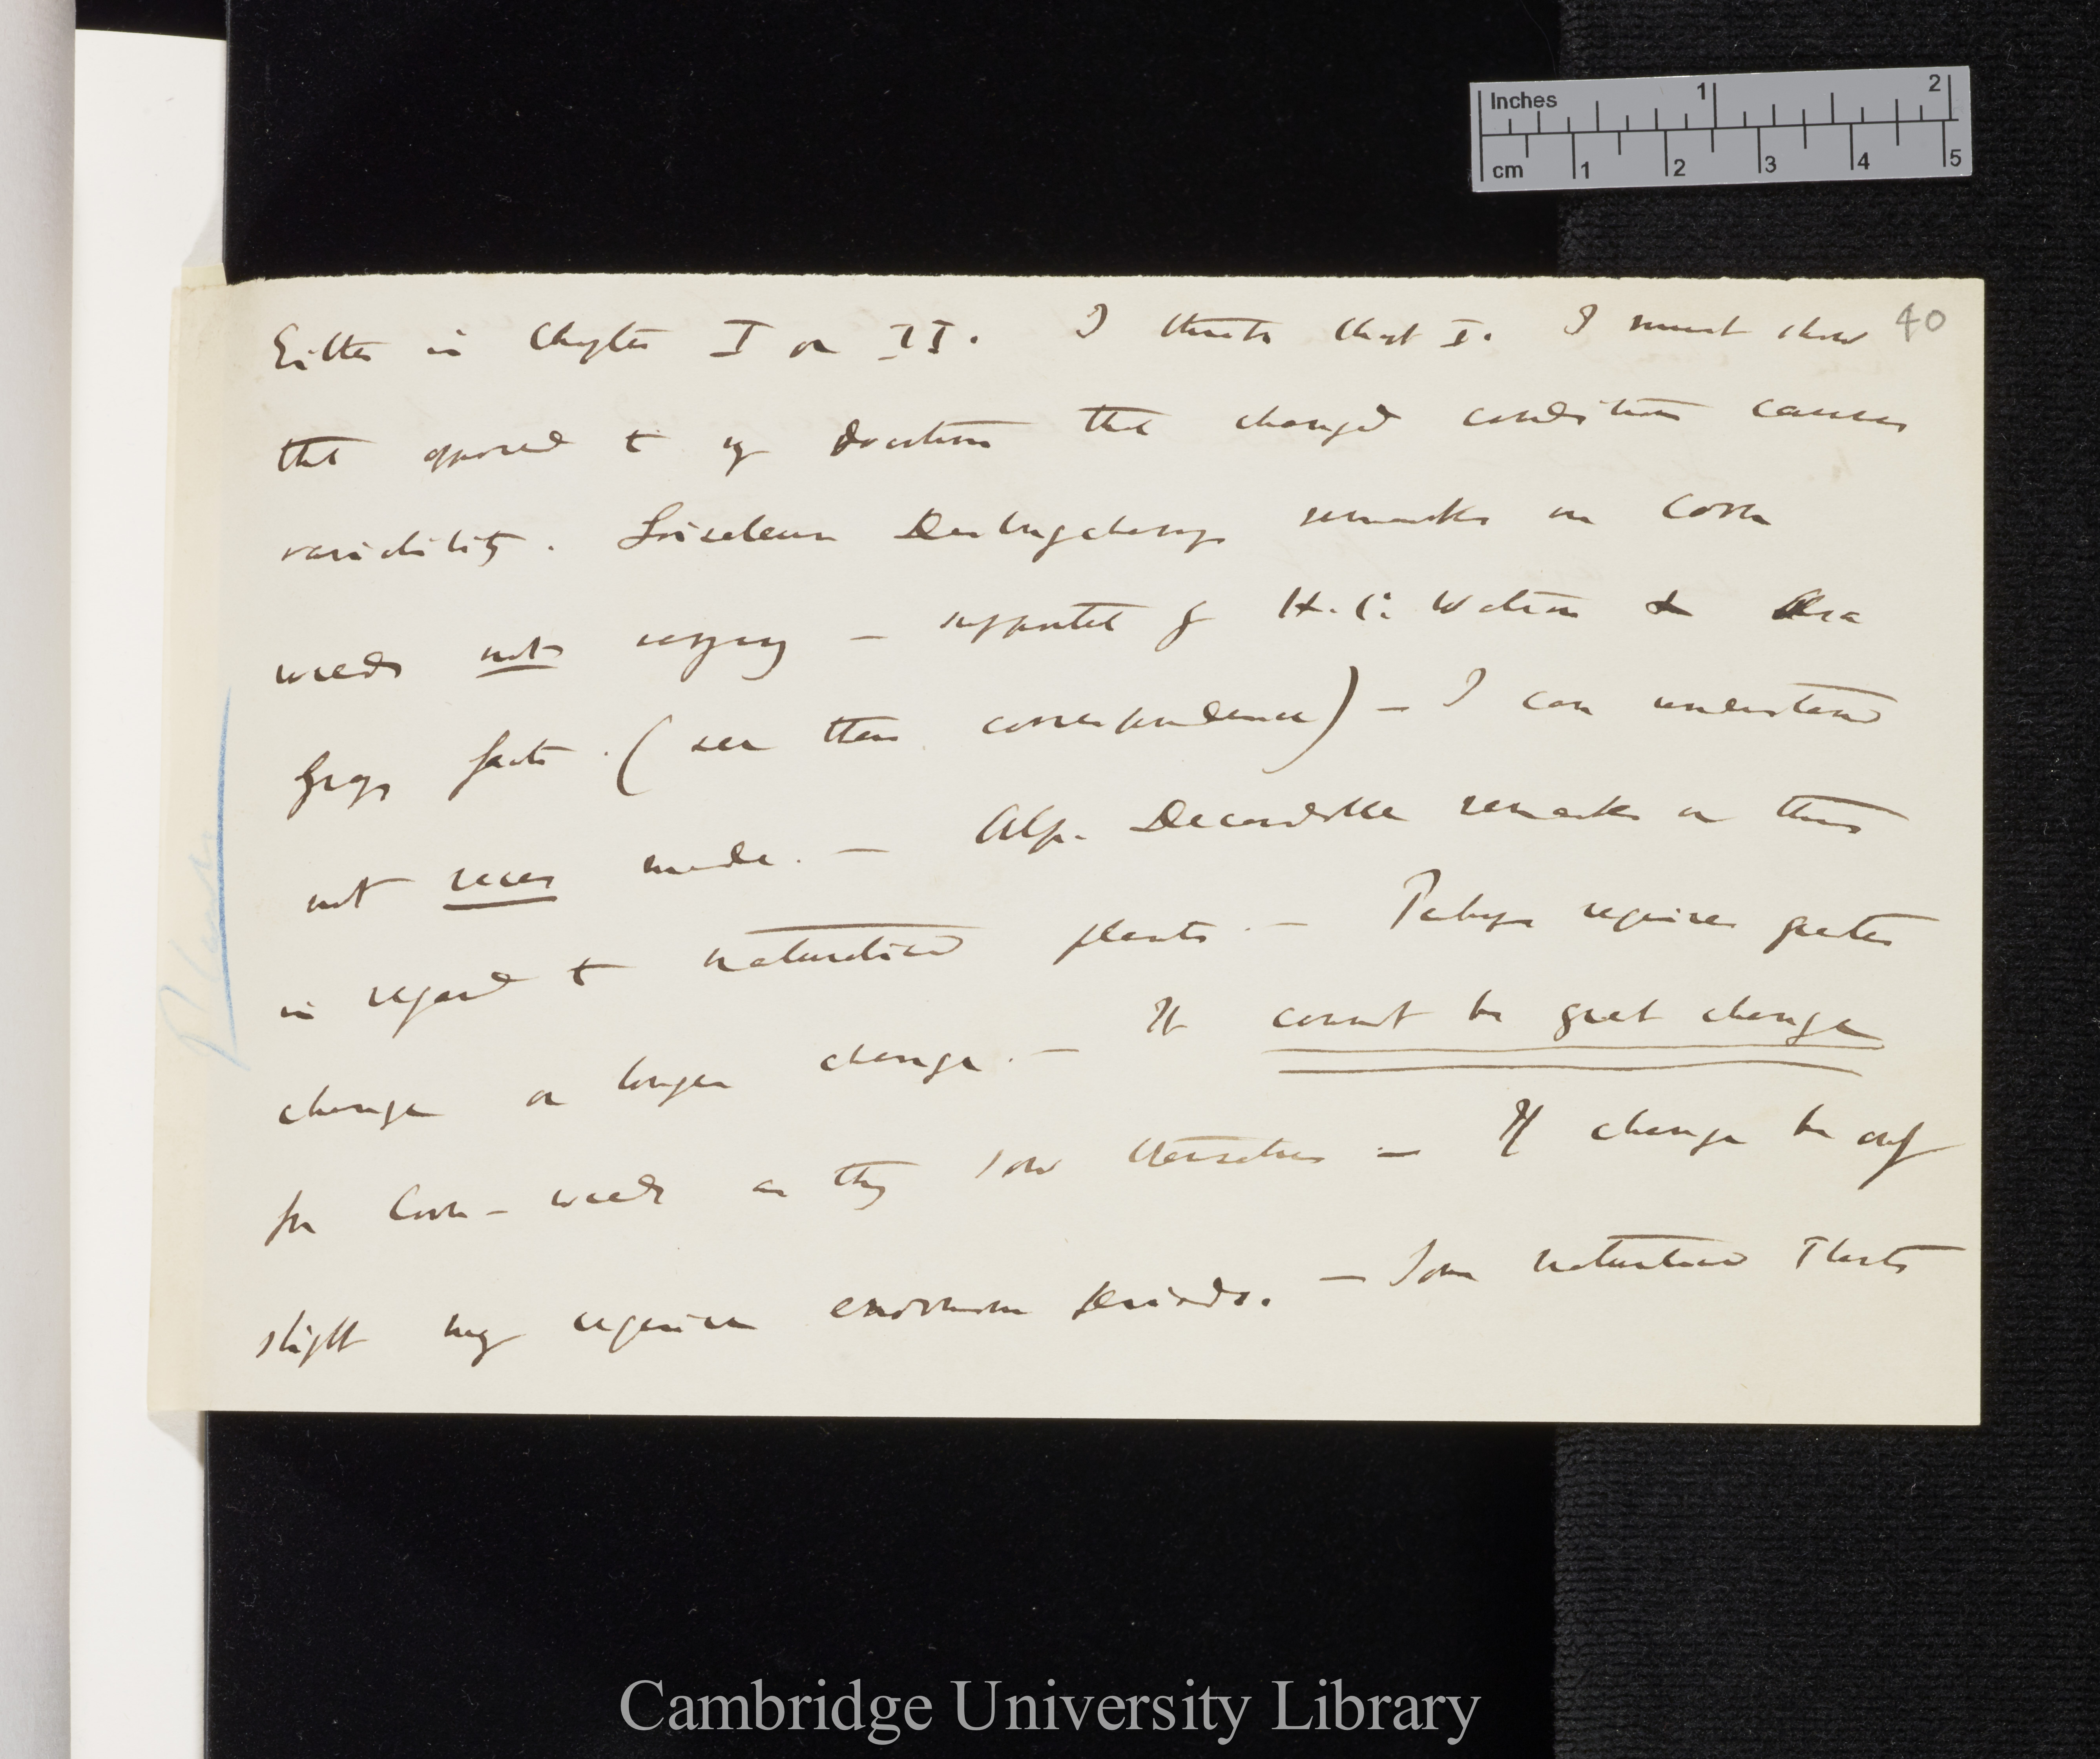 Inches 1 2
cm 1 2 3 4 5
40
Either in Chapter I or II. I think Chapt I. I must show
that opposed to my doctrine that changed conditions causes
variability. Loiseleur Deslongchamps remarks on corn
weeds not varying — supported by H. C. Watson & Asa
Grays facts. (see their correspondence) — I can understand
not races made. — Alp. Decandolle remarks on this
in regard to naturalised plants. — Perhaps requires greater
change or longer change. — It cannot be great change
for Corn-weeds as they sow themselves — If change be only
slight may require enormous periods. — Some naturalised Plants
Cambridge University Library